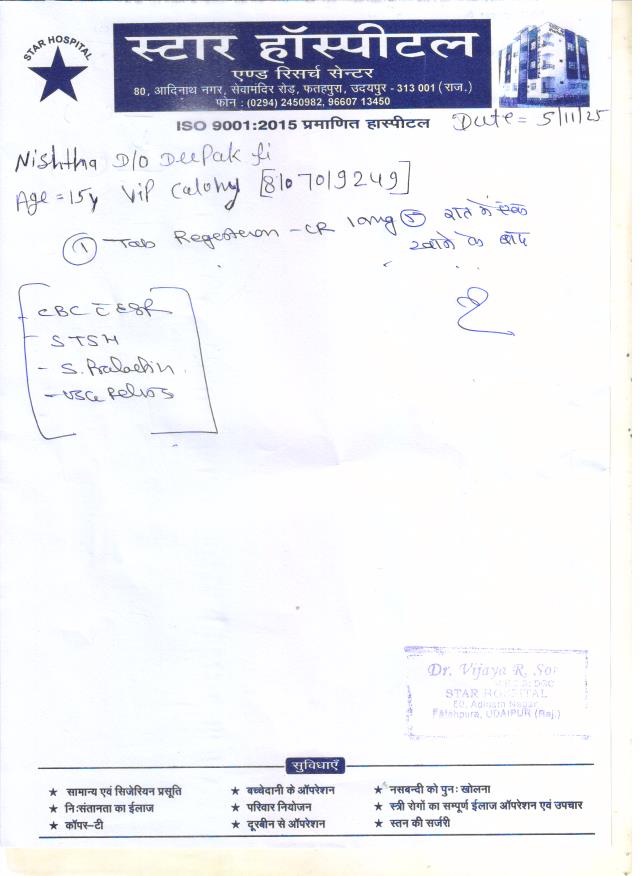 STAR HOSPITAL
स्टार हॉस्पीटल
एण्ड रिसर्च सेन्टर
80, आदिनाथ नगर, सेवामंदिर रोड़, फतहपुरा, उदयपुर - 313 001 (राज.)
फोन : (0294) 2450982, 96607 13450
ISO 9001:2015 प्रमाणित हास्पीटल
Date = 5/11/25
Nishtha D/O Deepak ji
Age = 15y VIP Calony [8107019249]
① Tab Regesteron - CR 10mg ⑤ रात में एक
खाने के बाद
- CBC c ESR
- S TSH
- S. Prolactin
- USG Pelvis
Dr. Vijaya R. Son
STAR HOSPITAL
80, Adinath Nagar
Fatehpura, UDAIPUR (Raj.)
सुविधाएँ
★ सामान्य एवं सिजेरियन प्रसूति ★ बच्चेदानी के ऑपरेशन ★ नसबन्दी को पुनः खोलना
★ निःसंतानता का ईलाज ★ परिवार नियोजन ★ स्त्री रोगों का सम्पूर्ण ईलाज ऑपरेशन एवं उपचार
★ कॉपर-टी ★ दूरबीन से ऑपरेशन ★ स्तन की सर्जरी